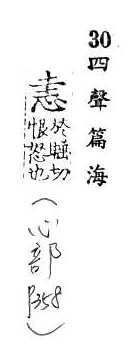 30 四聲篇海
恚
於睡切
恨怒也
(心部 P358)